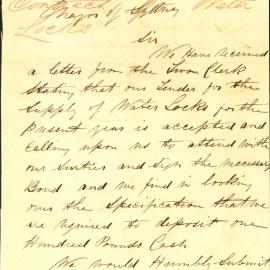 Contract Water
Mayor of Sydney
Locks
Sir
We Have received
a letter from the Town Clerk
Stating that our Tender for the
Supply of Water Locks for the
Present year is accepted and
Calling upon us to attend with
our Surties and Sign the necessary
Bond and we find in looking
over the Specification that we
are required to deposit one
Hundred Pounds Cash
We would Humbly Submit